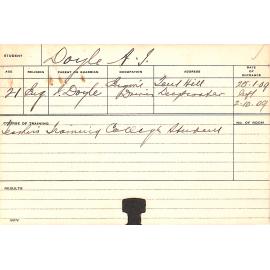 STUDENT Doyle A. J.
AGE RELIGION PARENT OR GUARDIAN OCCUPATION ADDRESS DATE OF ENTRANCE
21 J. Doyle Hill 20.1.09
Deepwater left
2.10.09
COURSE OF TRAINING NO. OF ROOM
Training College Student
RESULTS
NOTE